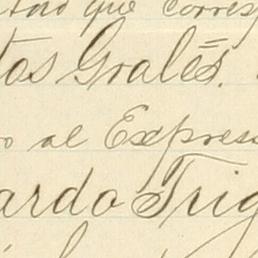 que corresp
tos Grales.
o al Expres
ardo Trig